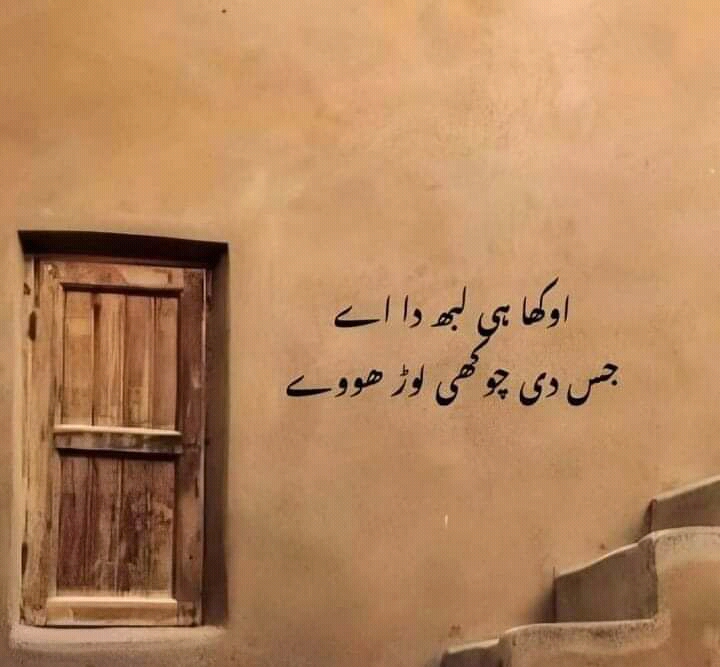 اوکھا ہی لبھ دا اے
جس دی چوکھی لوڑ ھووے